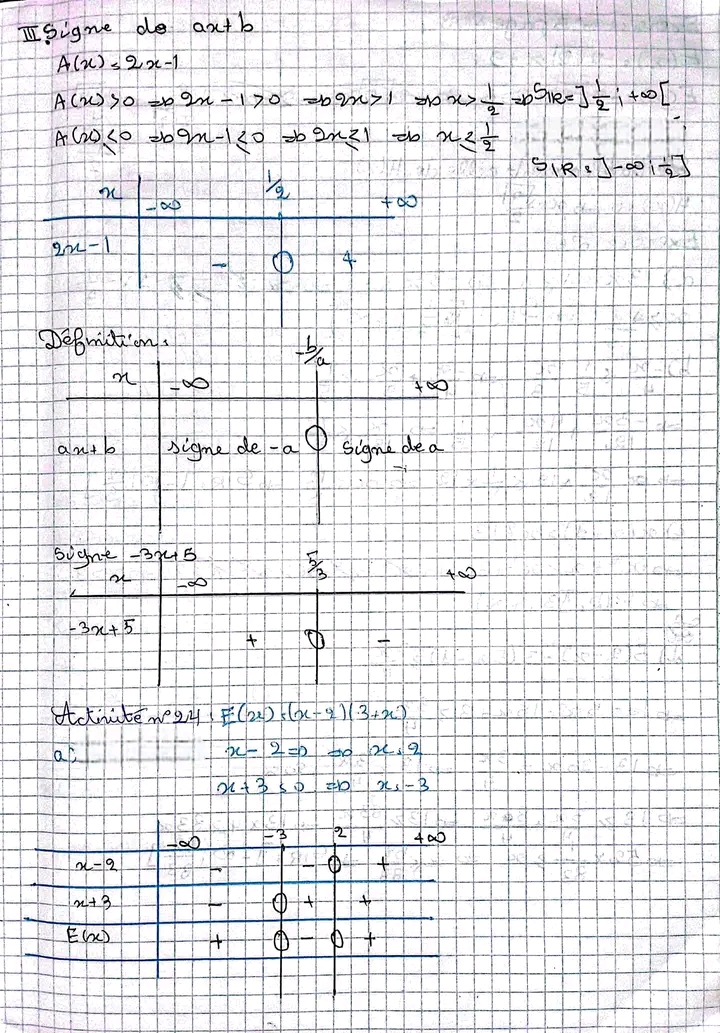 III Signe de ax+b
A(x) = 2x-1
A(x) > 0 ⇒ 2x-1 > 0 ⇒ 2x > 1 ⇒ x > 1/2 ⇒ SIR = ]1/2 ; +∞[
A(x) ≤ 0 ⇒ 2x-1 ≤ 0 ⇒ 2x ≤ 1 ⇒ x ≤ 1/2
SIR = ]-∞ ; 1/2]
x -∞ 1/2 +∞
2x-1 - 0 +
Définition :
x -∞ -b/a +∞
ax+b signe de -a 0 signe de a
Signe -3x+5
x -∞ 5/3 +∞
-3x+5 + 0 -
Activité n° 24 : E(x) = (x-2)(3+x)
a; x-2=0 ⇒ x = 2
x+3 = 0 ⇒ x = -3
-∞ -3 2 +∞
x-2 - - 0 +
x+3 - 0 + +
E(x) + 0 - 0 +